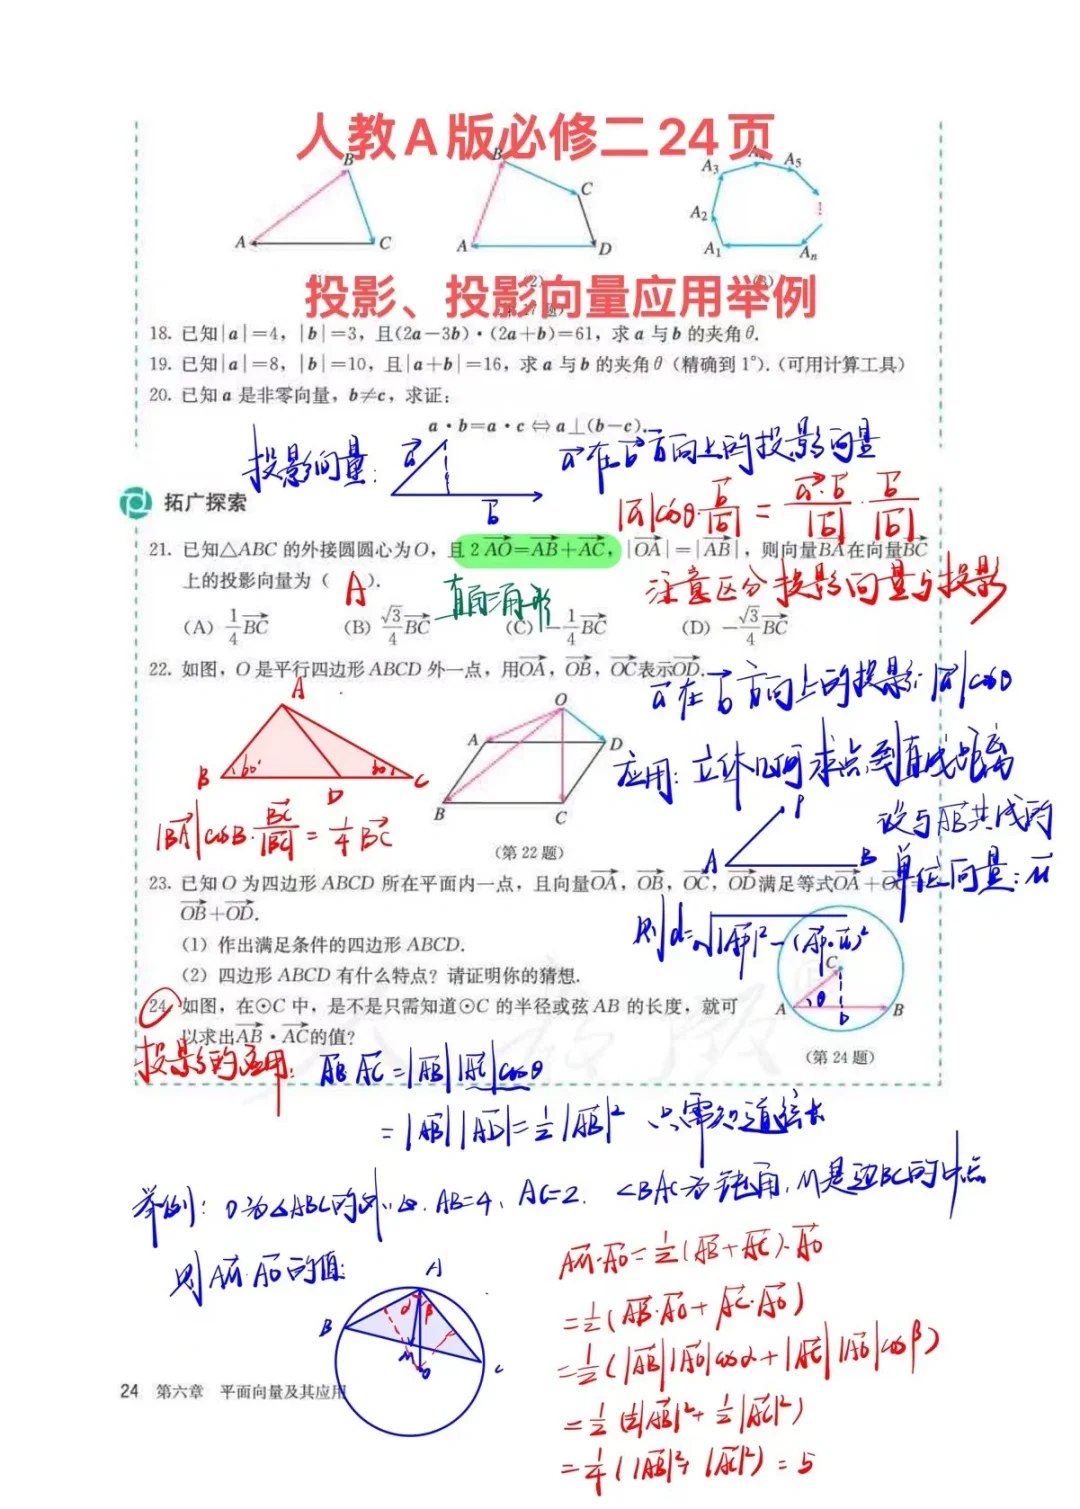 人教A版必修二24页
B
A
C
B
C
A
D
A3
A5
A2
A1
An
投影、投影向量应用举例
18. 已知|a|=4，|b|=3，且(2a-3b)·(2a+b)=61，求 a 与 b 的夹角θ.
19. 已知|a|=8，|b|=10，且|a+b|=16，求 a 与 b 的夹角θ（精确到 1°）.（可用计算工具）
20. 已知 a 是非零向量，b≠c，求证：
a·b=a·c⇔a⊥(b-c).
投影向量：
a→
b→
a→在b→方向上的投影向量
|a→|cosθ·b→/|b→| = a→·b→/|b→| · b→/|b→|
拓广探索
21. 已知△ABC 的外接圆圆心为O，且 2AO→=AB→+AC→，|OA→|=|AB→|，则向量BA→在向量BC→
上的投影向量为（ A ）.
直角三角形
注意区分投影向量与投影
(A) 1/4 BC→ (B) √3/4 BC→ (C) -1/4 BC→ (D) -√3/4 BC→
22. 如图，O 是平行四边形 ABCD 外一点，用OA→，OB→，OC→表示OD→.
a→在b→方向上的投影：|a→|cosθ
A
B
60°
D
30°
C
|BA→|cosB·BC→/|BC→| = 1/4 BC→
O
A
D
B
C
（第 22 题）
应用：立体几何求点到直线距离
P
A
B
设与AB→共线的
单位向量：u→
则d=√(|AP→|²-(AP→·u→)²)
23. 已知 O 为四边形 ABCD 所在平面内一点，且向量OA→，OB→，OC→，OD→满足等式OA→+OC→=
OB→+OD→.
(1) 作出满足条件的四边形 ABCD.
(2) 四边形 ABCD 有什么特点？请证明你的猜想.
24. 如图，在⊙C 中，是不是只需知道⊙C 的半径或弦 AB 的长度，就可
以求出AB→·AC→的值？
C
A
θ
D
B
（第 24 题）
投影的应用：
AB→·AC→=|AB→||AC→|cosθ
=|AB→||AD→|=1/2|AB→|² 只需知道弦长
举例：O为△ABC的外心，AB=4，AC=2，∠BAC为钝角，M是边BC的中点
则AM→·AO→的值：
A
α
β
B
M
O
C
AM→·AO→=1/2(AB→+AC→)·AO→
=1/2(AB→·AO→+AC→·AO→)
=1/2(|AB→||AO→|cosα+|AC→||AO→|cosβ)
=1/2(1/2|AB→|²+1/2|AC→|²)
=1/4(|AB→|²+|AC→|²)=5
24 第六章 平面向量及其应用